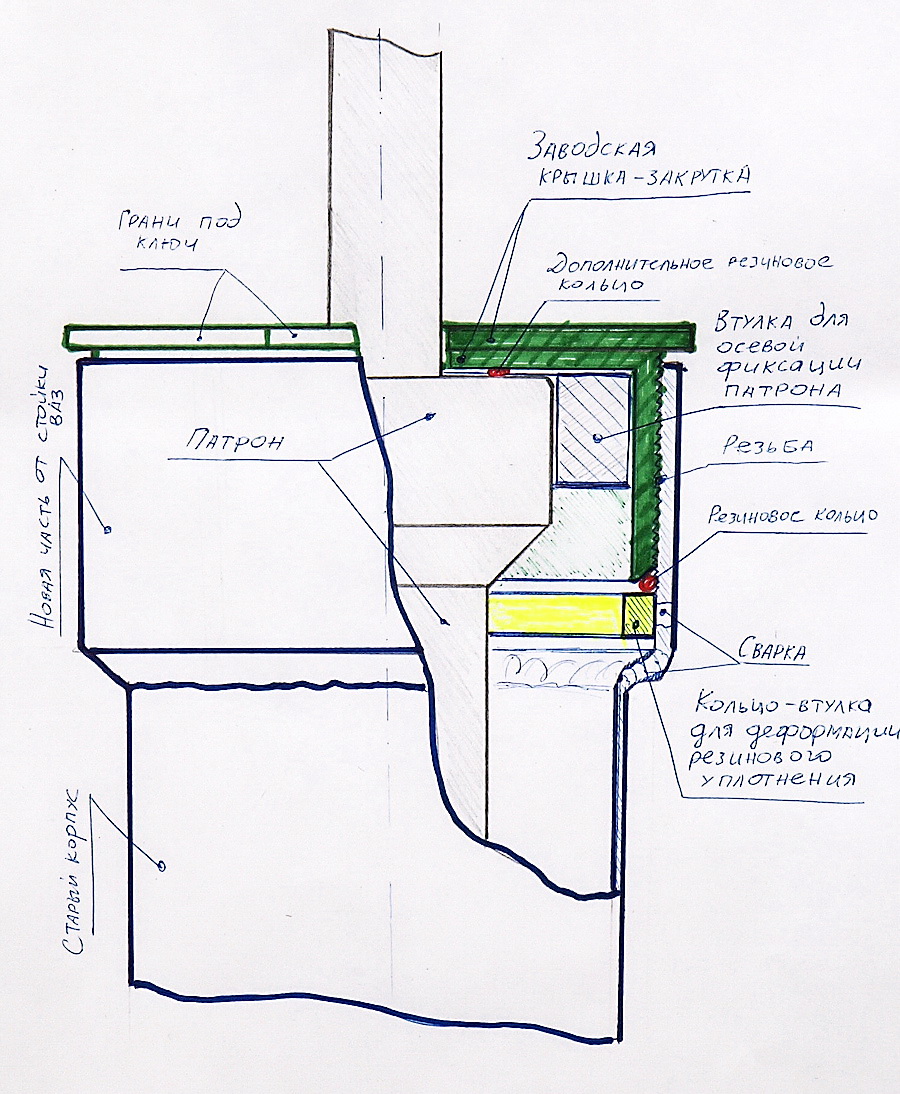 Заводская
крышка-закрутка
Грани под
ключ
Дополнительное резиновое
кольцо
Втулка для
осевой
фиксации
патрона
Новая часть от стойки
ВАЗ
Патрон
Резьба
Резиновое кольцо
Сварка
Кольцо-втулка
для деформации
резинового
уплотнения
Старый корпус